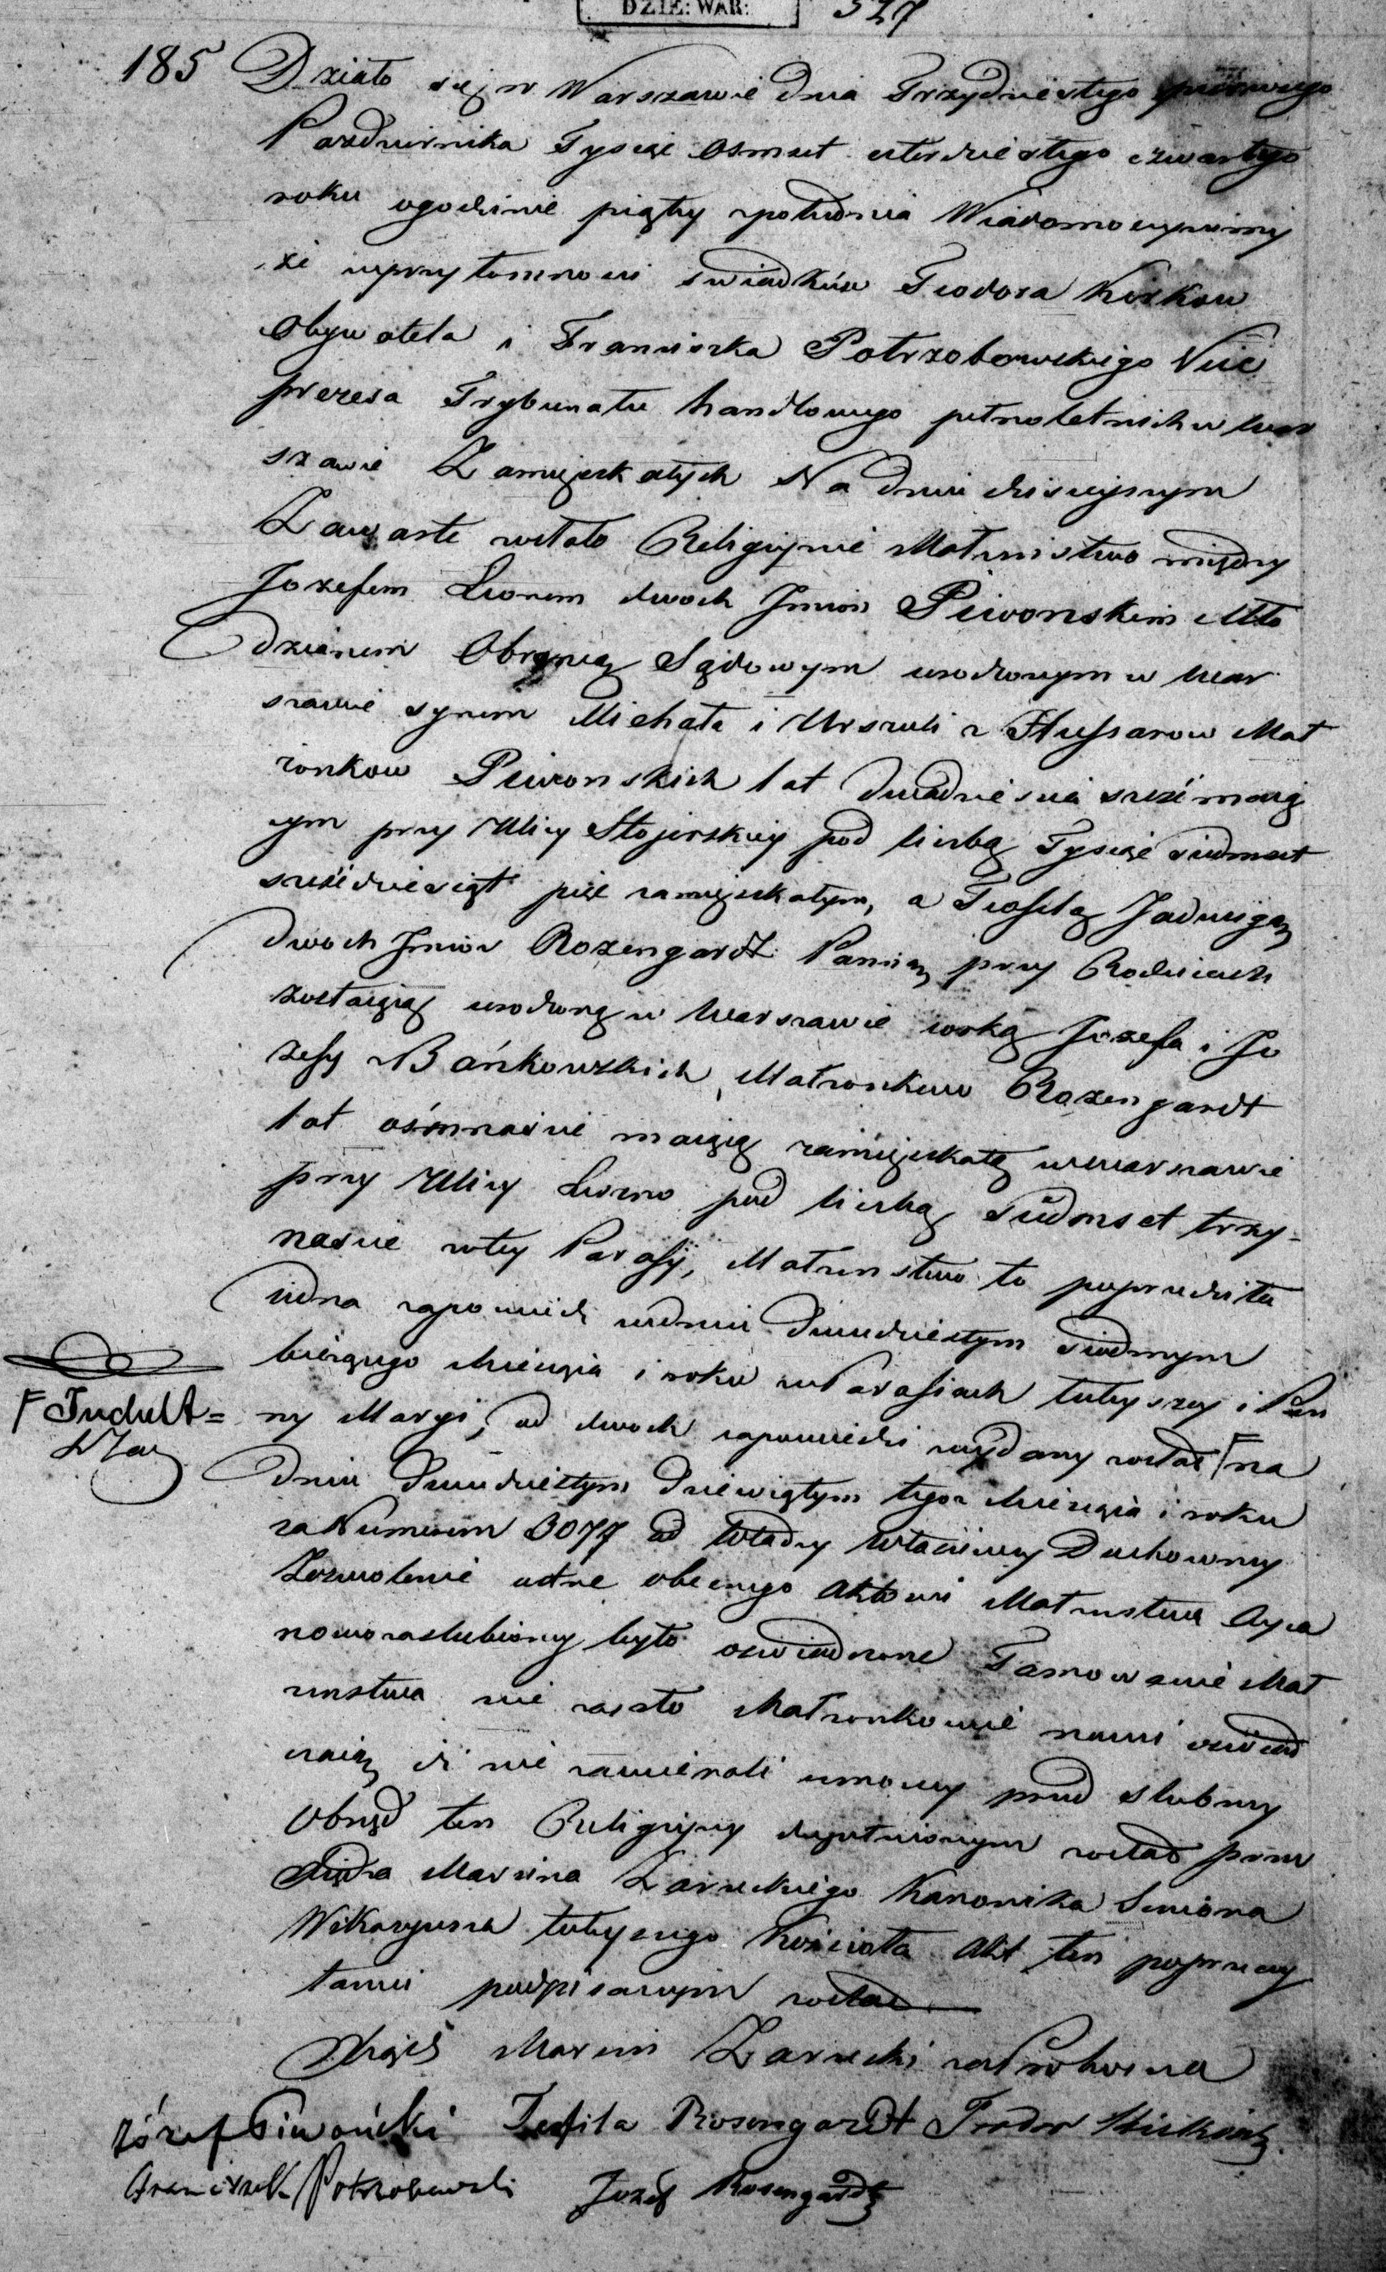 DZIE: WAR:
327
185 Działo się w Warszawie dnia Trzydziestego pierwszego
Pazdziernika Tysiąc Osmset czterdziestego czwartego
roku ogodzinie piąty zpołudnia Wiadomo czyniemy
że wprzytomnosci swiadków Teodora
Obywatela i Franciszka Potrzobowskiego Vice
prezesa Trybunału handlowego pełnoletnich w War
szawie Zamięszkałych Na dniu dzisieyszym
Zawarte zostało Religiynie Małżeństwo między
Jozefem Leonem dwoch Jmion Piwonskim Mło
dzianem Obrońcą Sądowym urodzonym w War
szawie synem Michała i Urszuli z Hussarow Mał
żonkow Piwonskich lat dwadziescia sześć maią
cym przy Ulicy S'tojerskiey pod liczbą Tysiąc siedmset
sześćdziesiąt pięć zamięszkałym, a Teofilą Jadwigą
dwoch Jmion Rozengardt Panną przy Rodzicach
zostaiącą urodzoną w Warszawie corką Jozefa i Jo
zefy z Bańkowskich Małżonkow Rozengardt
lat ośmnascie maiącą zamięszkałą w Warszawie
przy Ulicy Leszno pod liczbą siedmset trzy-
nascie wtey Parafii, Małżenstwo to poprzedziła
iedna zapowiedź wdniu dwudziestym siodmym
bieżącego Miesiąca i roku w Parafiach tuteyszey i Pan
ny Maryi, od dwoch zapowiedzi wydany został F na
F Indult =
dniu dwudziestym dziewiątym tegoż Miesiąca i roku
za Numerem 3077 od Władzy właściwey Duchowney
Zezwolenie ustne obecnego Aktowi Małżenstwa Oyca
nowozaslubioney było oswiadczone Tamowanie Mał
żenstwa nie zaszło Małżonkowie nowi oswiad
czaią iż nie zawierali umowy przed slubney
Obrzęd ten Religiyny dopełnionym został przez
Xiędza Marcina Zarzeckiego Kanonika Seniora
Wikaryusza tuteyszego Kościoła Akt ten po przeczy
taniu podpisanym został
Xiądz Marcin Zarzecki za Proboszcza
Józef Piwoński Teofila Rosengardt Teodor
Franciszek Potrzobowski Jozef Rosengardt